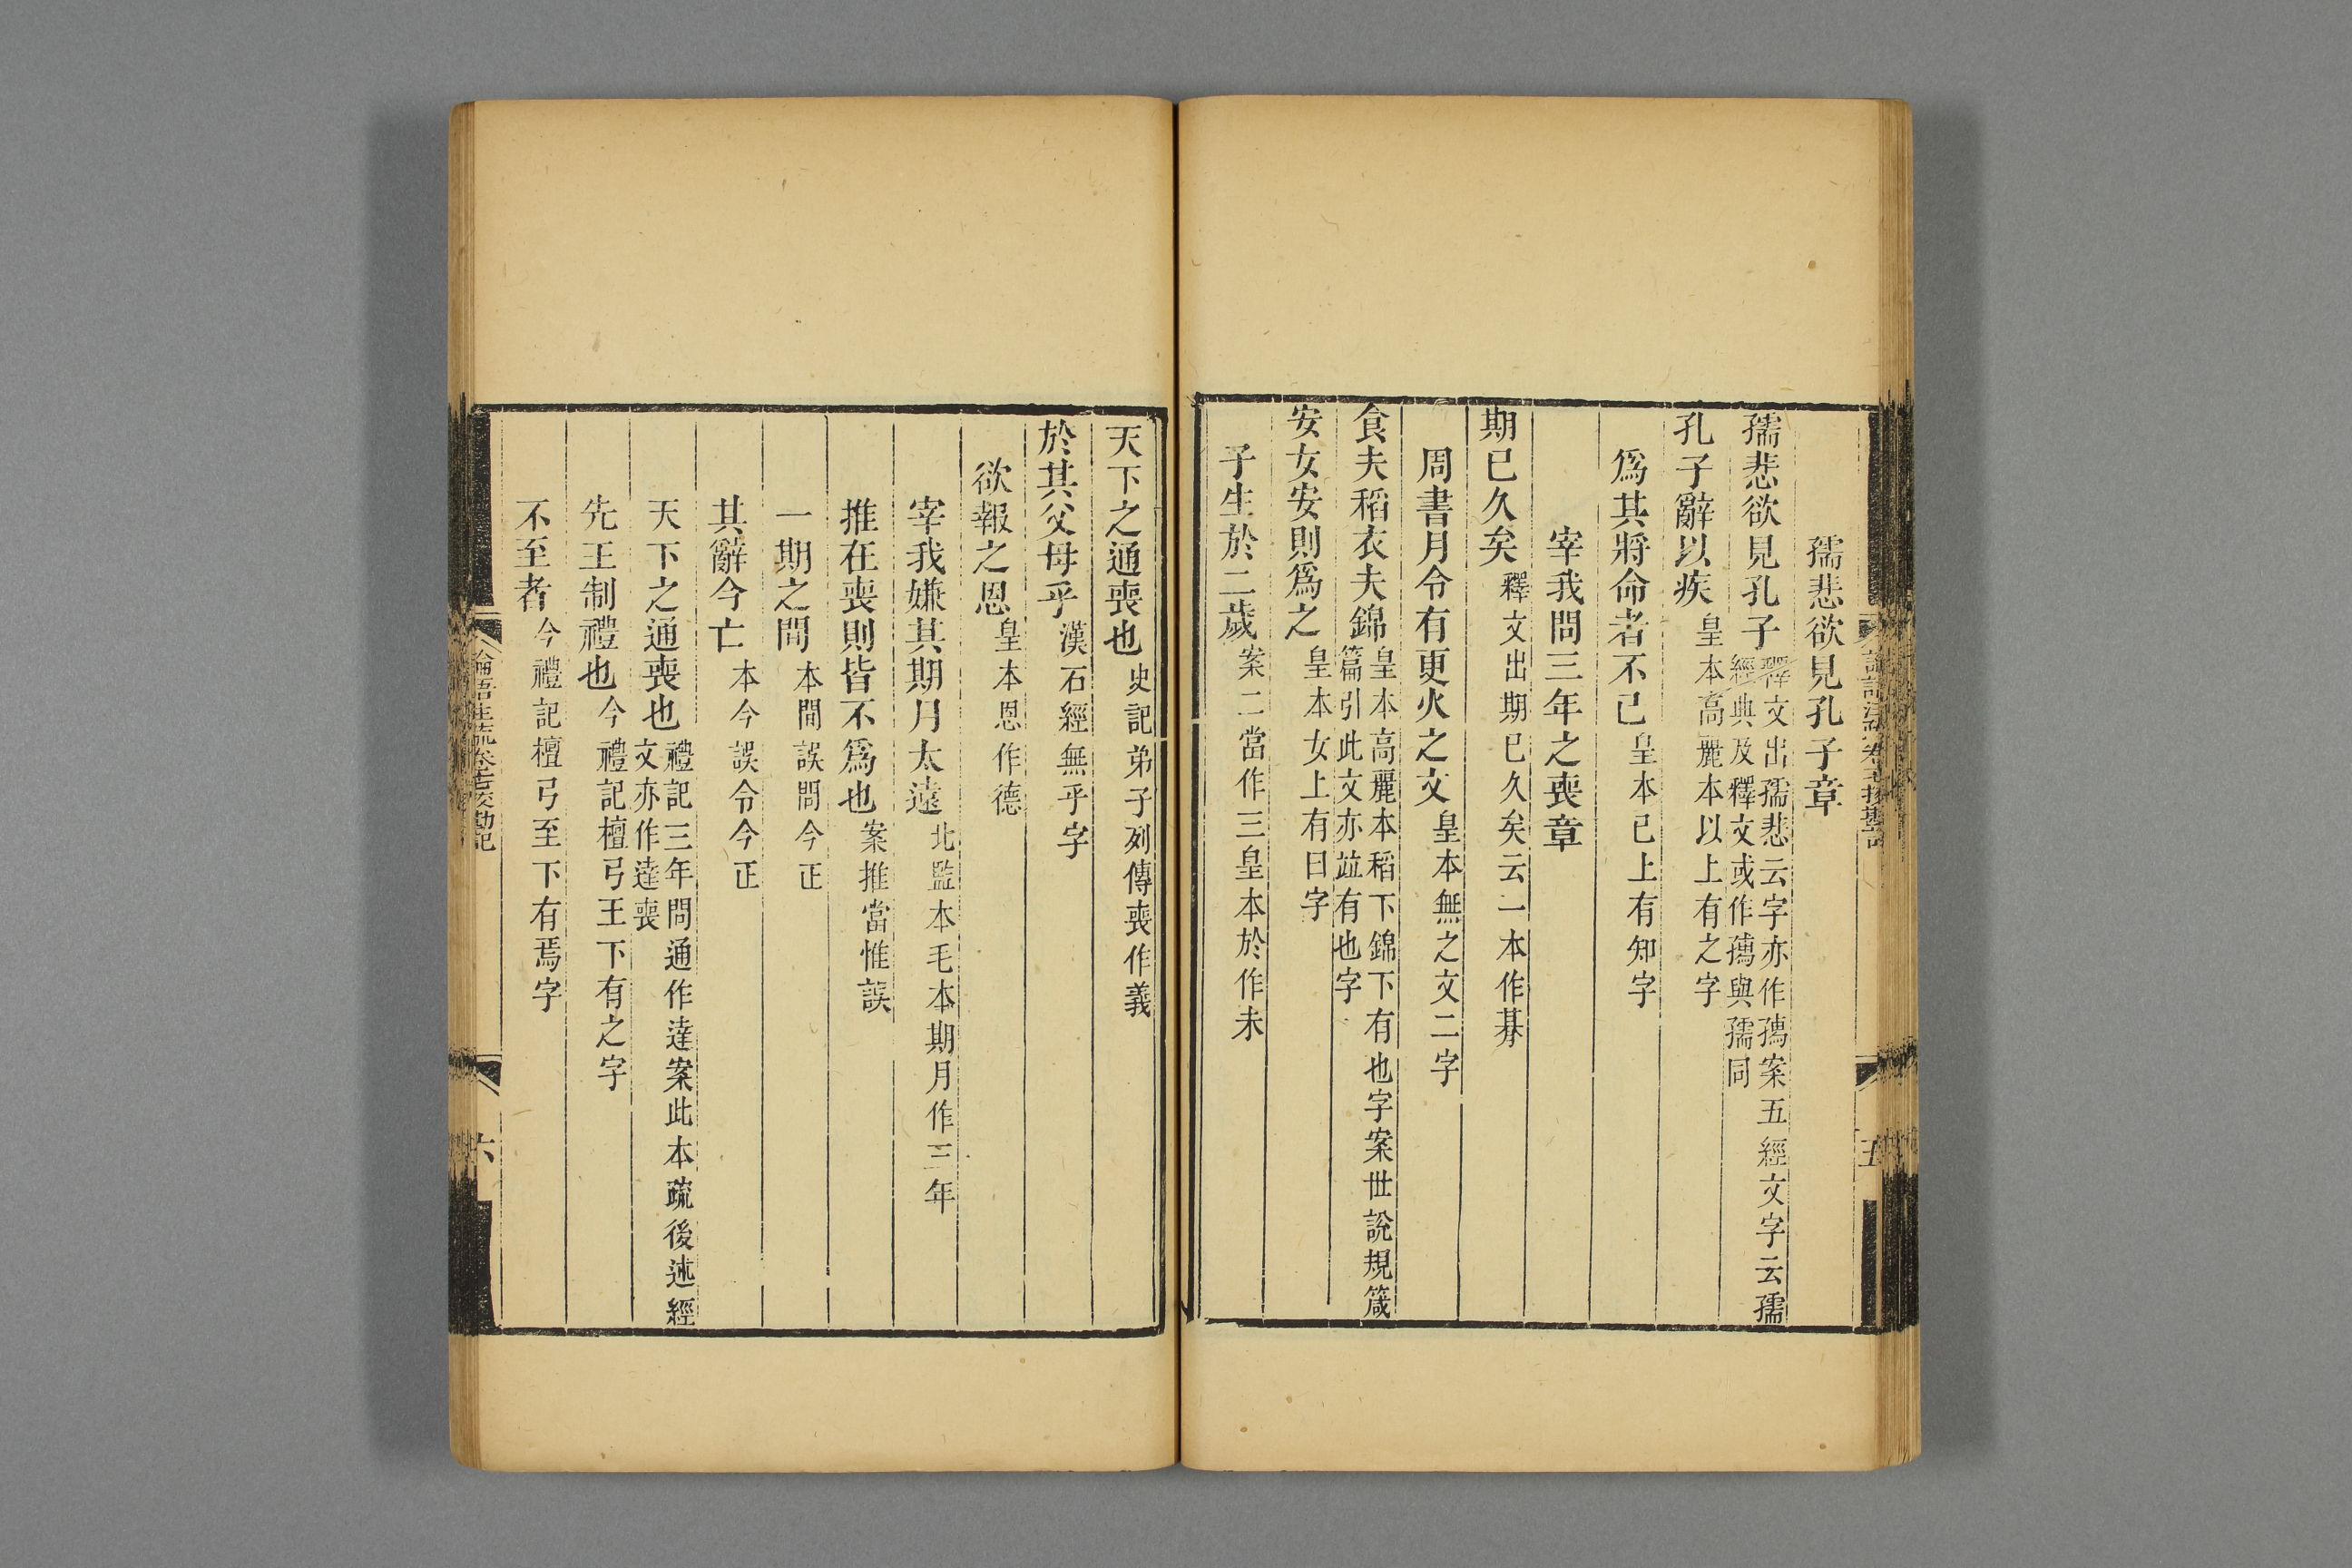 孺悲欲見孔子章
孺悲欲見孔子釋文出孺悲云字亦作㺀案五經文字云孺
經典及釋文或作㺀與孺同
孔子辭以疾皇本高麗本以上有之字
爲其將命者不已皇本已上有知字
宰我問三年之喪章
期已久矣釋文出期已久矣云一本作朞
周書月令有更火之文皇本無之文二字
食夫稻衣夫錦皇本高麗本稻下錦下有也字案世說規箴
篇引此文亦竝有也字
安女安則爲之皇本女上有曰字
子生於二歲案二當作三皇本於作未
天下之通喪也史記弟子列傳喪作義
於其父母乎漢石經無乎字
欲報之恩皇本恩作德
宰我嫌其期月太遠北監本毛本期月作三年
推在喪則皆不爲也案推當惟誤
一期之間本間誤問今正
其辭今亡本今誤令今正
天下之通喪也禮記三年問通作達案此本疏後述經
文亦作達喪
先王制禮也今禮記檀弓王下有之字
不至者今禮記檀弓至下有焉字
論語注疏卷十七校勘記
六